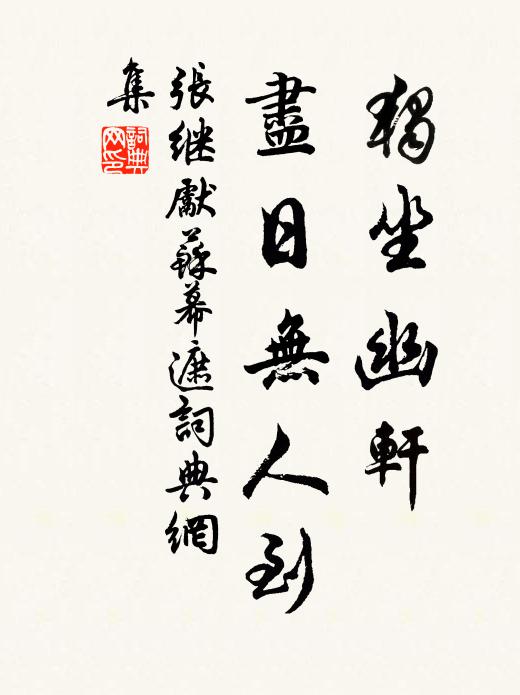 獨坐幽軒
盡日無人到
張继獻蘇幕遮詞典網
集
詞典
网印